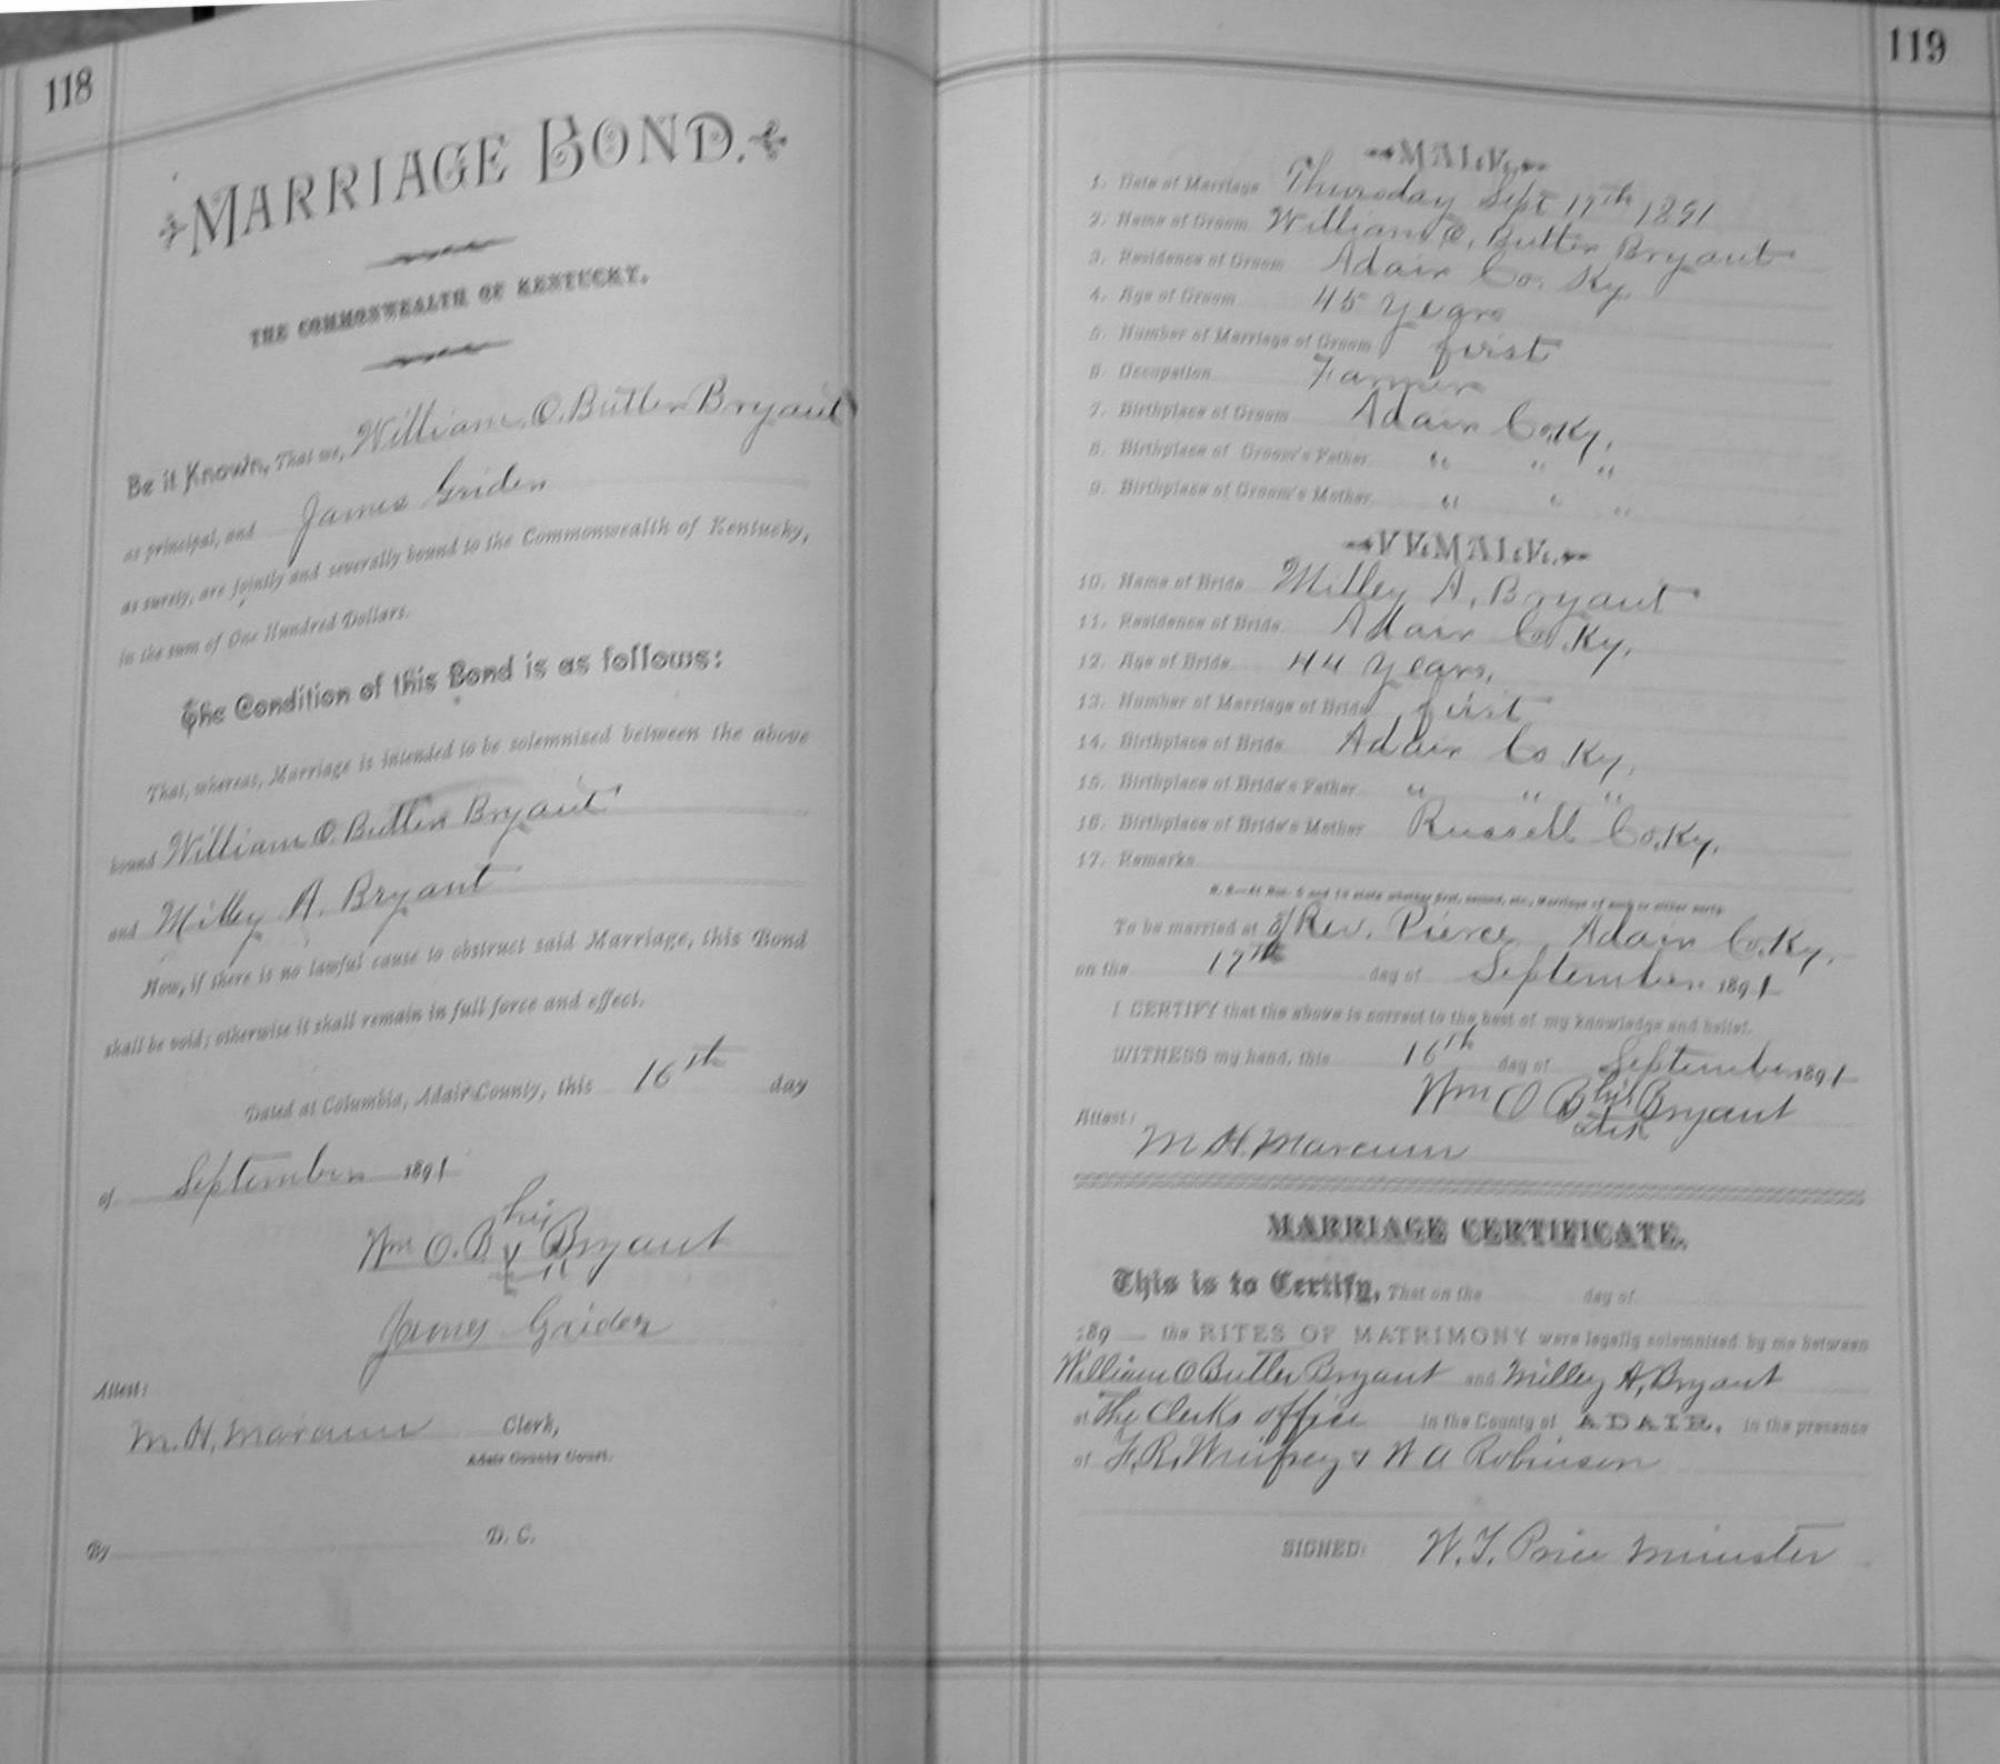 118
MARRIAGE BOND.
THE COMMONWEALTH OF KENTUCKY.
Be it Known, That we, William O. Butler Bryant
as principal, and James Griden
as surety, are jointly and severally bound to the Commonwealth of Kentucky,
in the sum of One Hundred Dollars.
The Condition of this Bond is as follows:
That, whereas, Marriage is intended to be solemnized between the above
bound William O. Butler Bryant
and Milley A. Bryant
Now, if there is no lawful cause to obstruct said Marriage, this Bond
shall be void; otherwise it shall remain in full force and effect.
Dated at Columbia, Adair County, this 16th day
of September 1891
his
Wm O. B x Bryant
James Griden
Attest:
M. H. Marcum Clerk,
Adair County Court.
By D. C.
119
MALE.
1. Date of Marriage Thursday Sept 17th 1891
2. Name of Groom William O. Butler Bryant
3. Residence of Groom Adair Co. Ky
4. Age of Groom 45 years
5. Number of Marriage of Groom first
6. Occupation Farmer
7. Birthplace of Groom Adair Co. Ky.
8. Birthplace of Groom's Father " " "
9. Birthplace of Groom's Mother " " "
FEMALE.
10. Name of Bride Milley A. Bryant
11. Residence of Bride Adair Co. Ky.
12. Age of Bride 44 years,
13. Number of Marriage of Bride first
14. Birthplace of Bride Adair Co Ky.
15. Birthplace of Bride's Father " " "
16. Birthplace of Bride's Mother Russell Co. Ky.
17. Remarks
N. B.—At Nos. 5 and 13 state whether first, second, etc., Marriage of each or either party
To be married at Rev. Pierce Adair Co. Ky.
on the 17th day of September 1891
I CERTIFY that the above is correct to the best of my knowledge and belief.
WITNESS my hand, this 16th day of September 1891
Wm O B his Bryant
Attest:
M H. Marcum
MARRIAGE CERTIFICATE.
This is to Certify, That on the day of
189 the RITES OF MATRIMONY were legally solemnized by me between
William O Butler Bryant and Milley A, Bryant
at The Clerks office in the County of ADAIR, in the presence
of F. R. Winfrey & W A Robinson
SIGNED: W. T. Price Minister